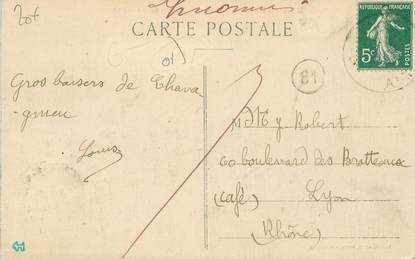 20f
Inconnu
CARTE POSTALE
REPUBLIQUE FRANÇAISE
5c
POSTES
81
Gros baisers de Chava
-gnieu
Louis
M Robert
60 boulevard des Brotteaux
(café) Lyon
(Rhône)